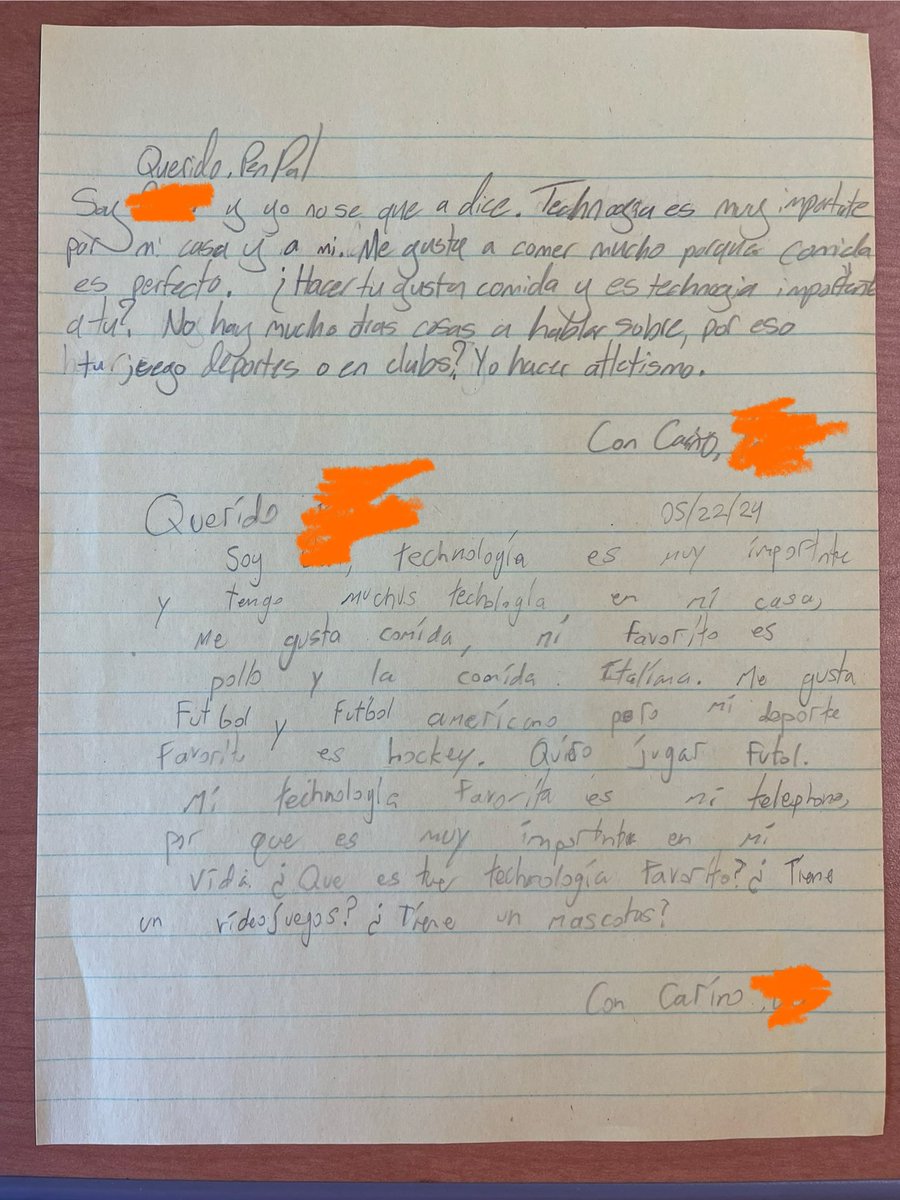 Querido, Pen Pal
Soy y yo no se que a dice. Technogia es muy importate
por mi casa y a mi. Me gusta a comer mucho porque comida
es perfecto. ¿Hacer tu gusta comida y es technogia important
a tu? No hay mucho otras cosas a hablar sobre, por eso
tu juego deportes o en clubs? Yo hacer atletismo.
Con Cariño,
Querido 05/22/24
Soy , technología es muy importnte
y tengo muchus techología en mi casa,
Me gusta comida, mi favorito es
pollo y la comida Italina. Me gusta
Futbol y Futbol americano pero mi deporte
Favorito es hockey. Quiso jugar Futol.
Mi technología Favorita es mi telephone,
por que es muy importnte en mi
vida. ¿Que es tuer technología Favorito? ¿Tiene
un videojuegos? ¿Tiene un mascotas?
Con Carino,